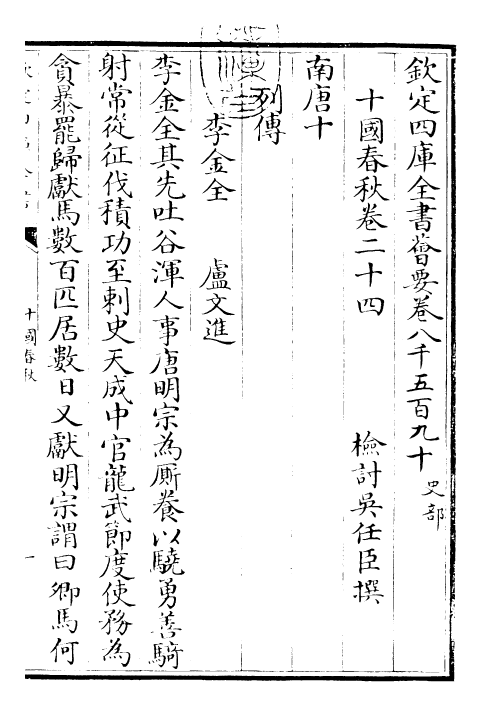 欽定四庫全書薈要卷八千五百九十 史部
十國春秋卷二十四
檢討吳任臣撰
南唐十
列傳
李金全 盧文進
李金全其先吐谷渾人事唐明宗為廝養以驍勇善騎
射常從征伐積功至刺史天成中官龍武節度使務為
貪暴罷歸獻馬數百匹居數日又獻明宗謂曰卿馬何
十國春秋
一